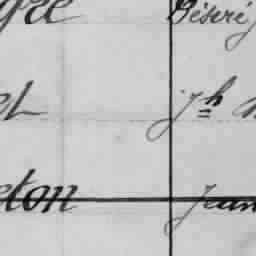 gée Déseré
et Jh
eton Jean